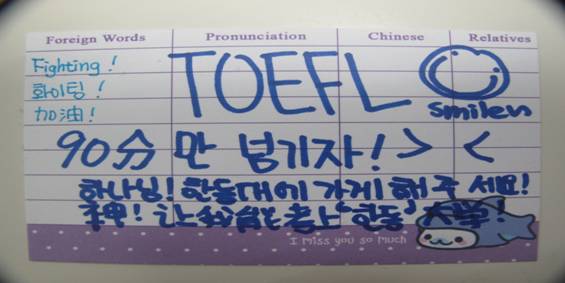 Foreign Words Pronunciation Chinese Relatives
Fighting!
화이팅!
加油!
TOEFL
smilen
90分 만 넘기자! > <
하나님! 한동대에 가게 해 주세요!
神! 让我能考上"한동"大学!
I miss you so much